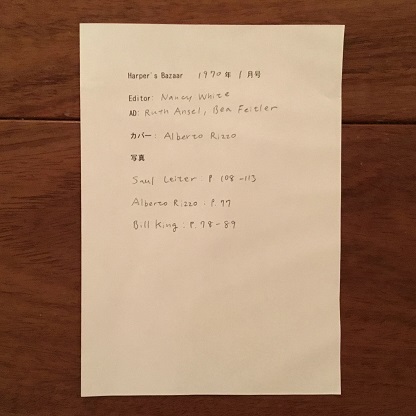 Harper's Bazaar 1970年 1月号
Editor: Nancy White
AD: Ruth Ansel, Bea Feitler
カバー: Alberto Rizzo
写真
Saul Leiter: P 108-113
Alberto Rizzo: P.77
Bill King: P.78-89